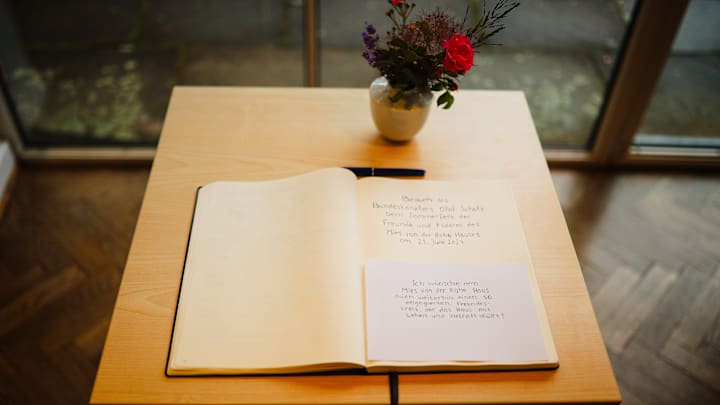 Besuch des
Bundeskanzlers Olaf Scholz
beim Sommerfest der
Freunde und Förderer des
Mies van der Rohe Hauses
am 21. Juni 2024
Ich wünsche dem
Mies van der Rohe Haus
auch weiterhin einen so
engagierten Freundes-
kreis, der das Haus mit
Leben und Vielfalt erfüllt!